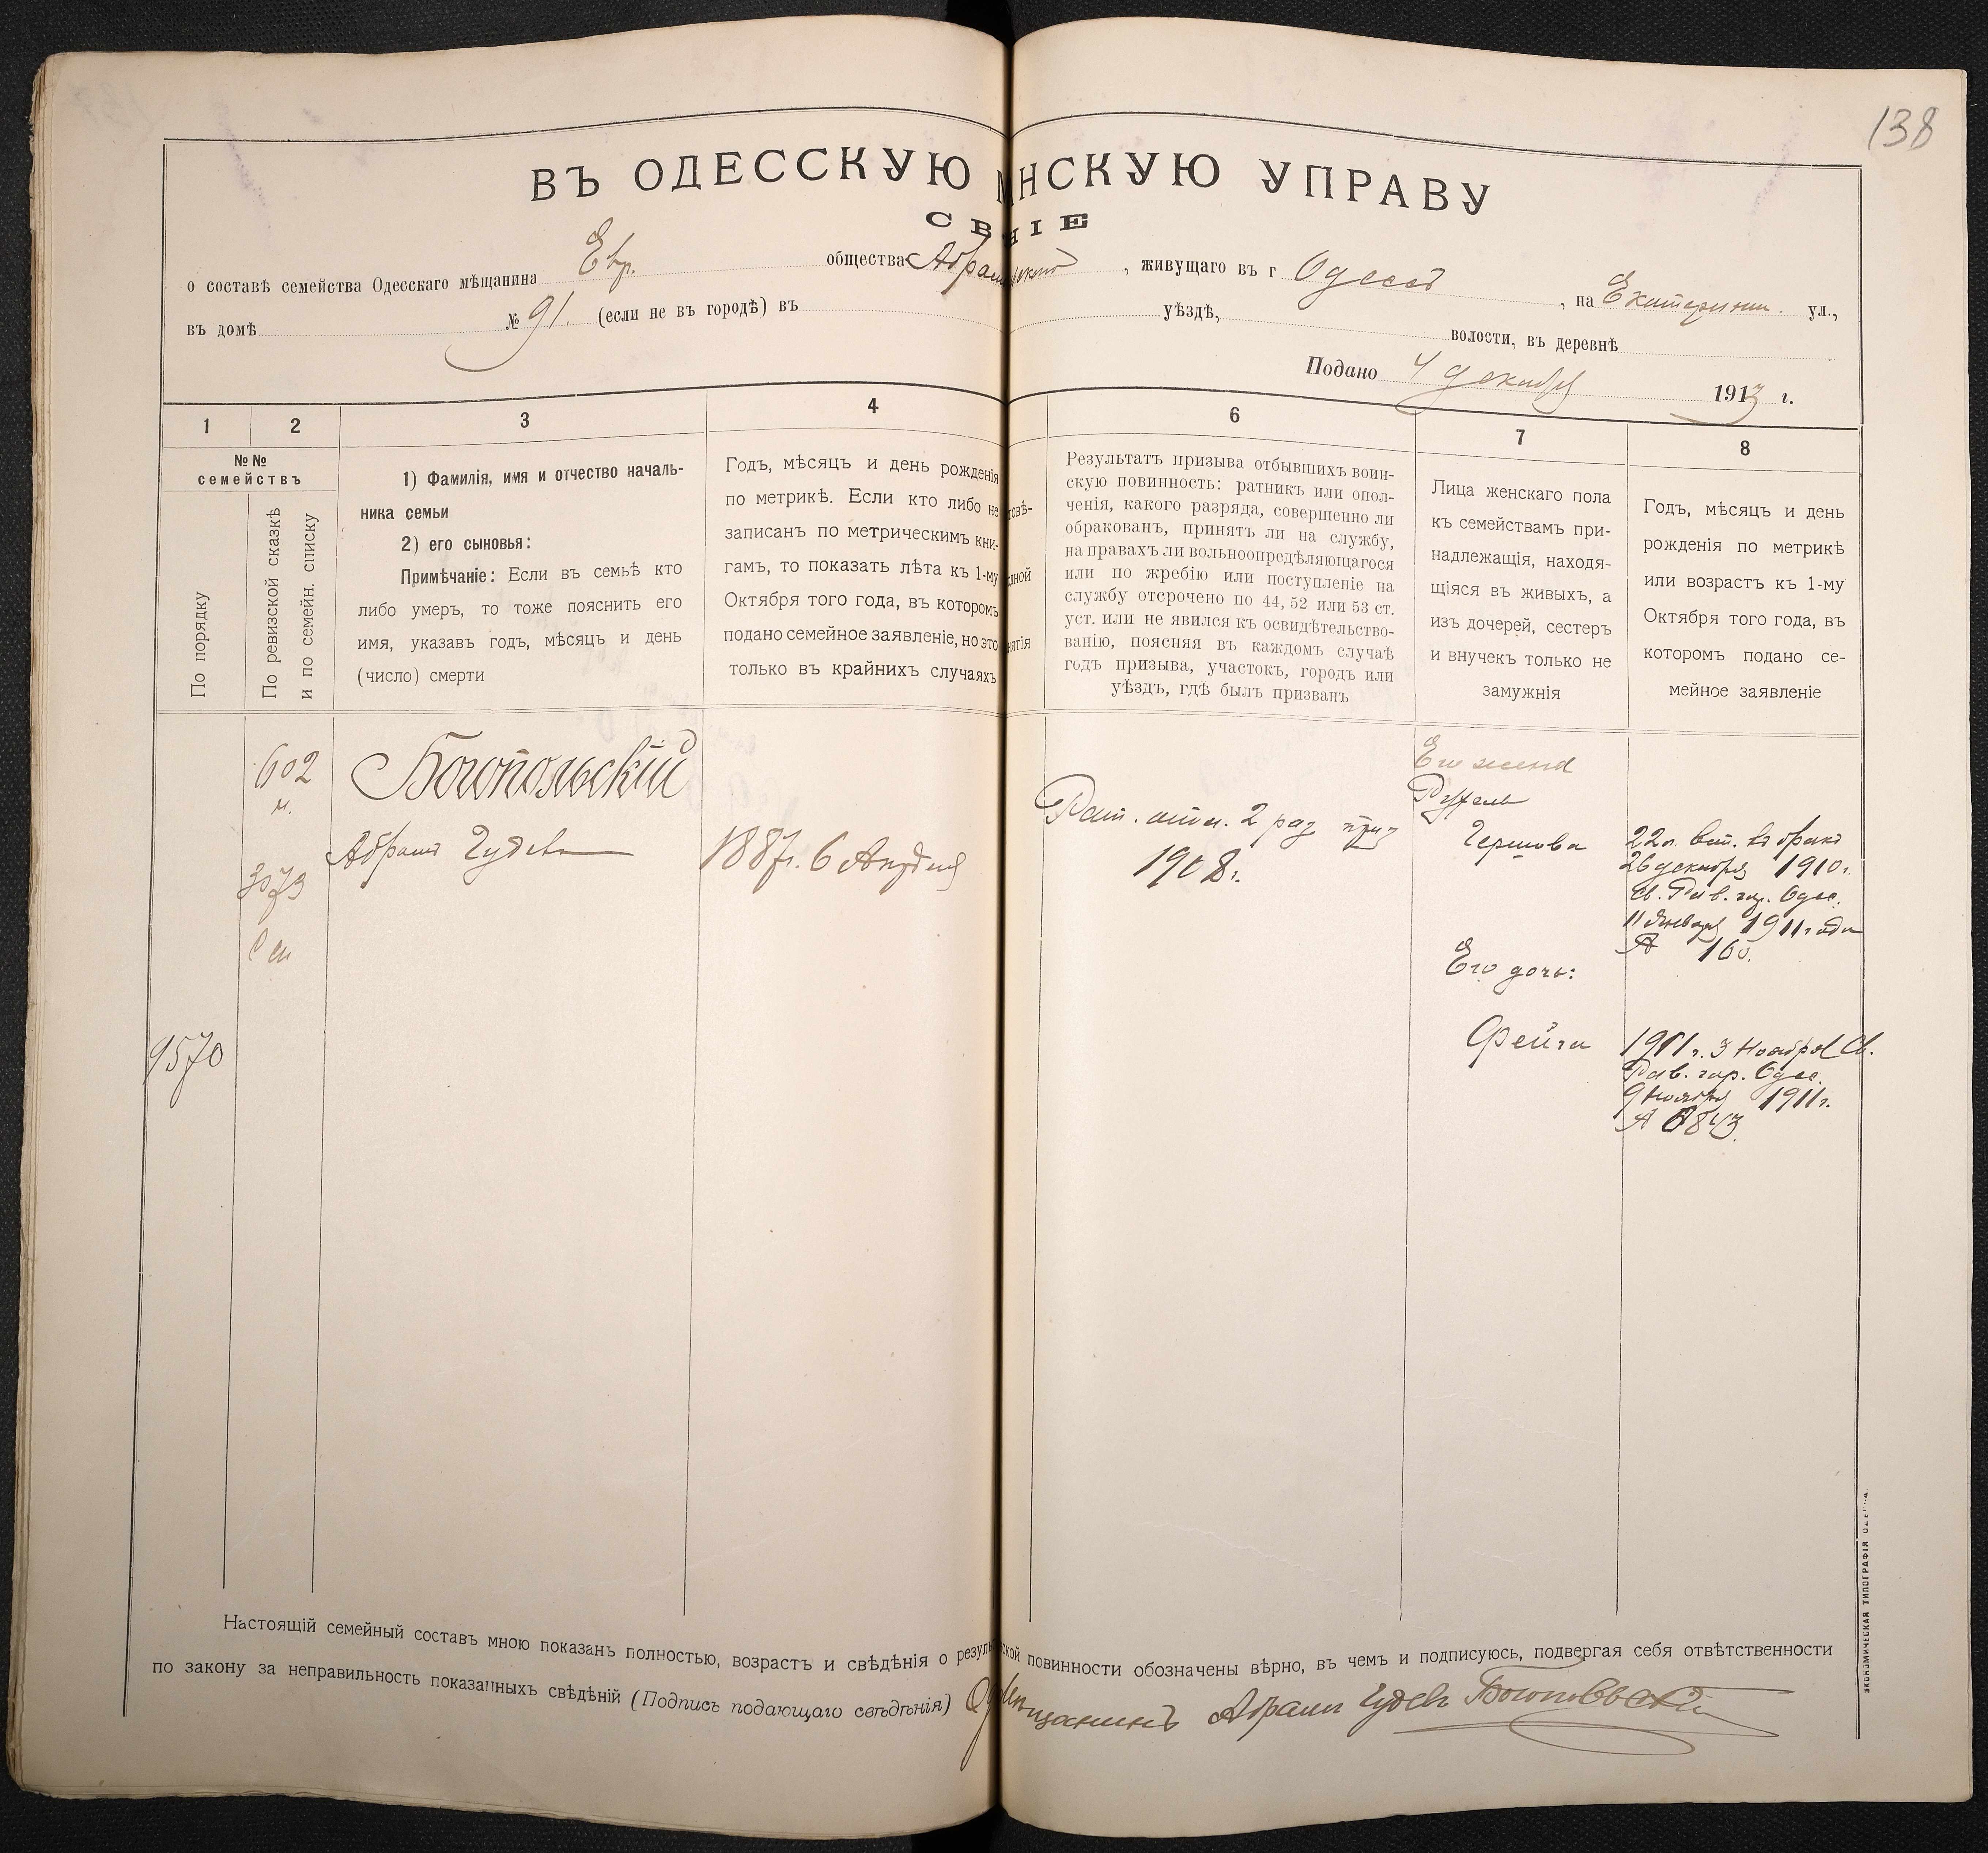 138
ВЪ ОДЕССКУЮ НСКУЮ УПРАВУ
СВ НІЕ
о составѣ семейства Одесскаго мѣщанина Евр. общества , живущаго въ г Одессѣ , на Екатеринин. ул.,
въ домѣ № 91. (если не въ городѣ) въ уѣздѣ, волости, въ деревнѣ
Подано 4 декабря 1913 г.
1 2 3 4 6 7 8
№ №
семействъ
По порядку
По ревизской сказкѣ
и по семейн. списку
1) Фамилія, имя и отчество началь-
ника семьи
2) его сыновья:
Примѣчаніе: Если въ семьѣ кто
либо умеръ, то тоже пояснить его
имя, указавъ годъ, мѣсяцъ и день
(число) смерти
Годъ, мѣсяцъ и день рожденія
по метрикѣ. Если кто либо не
записанъ по метрическимъ кни-
гамъ, то показать лѣта къ 1-му
Октября того года, въ которомъ
подано семейное заявленіе, но это
только въ крайнихъ случаяхъ
овѣ-
дной
нятія
Результатъ призыва отбывшихъ воин-
скую повинность: ратникъ или опол-
ченія, какого разряда, совершенно ли
обракованъ, принятъ ли на службу,
на правахъ ли вольноопредѣляющагося
или по жребію или поступленіе на
службу отсрочено по 44, 52 или 53 ст.
уст. или не явился къ освидѣтельство-
ванію, поясняя въ каждомъ случаѣ
годъ призыва, участокъ, городъ или
уѣздъ, гдѣ былъ призванъ
Лица женскаго пола
къ семействамъ при-
надлежащія, находя-
щіяся въ живыхъ, а
изъ дочерей, сестеръ
и внучекъ только не
замужнія
Годъ, мѣсяцъ и день
рожденія по метрикѣ
или возрастъ къ 1-му
Октября того года, въ
которомъ подано се-
мейное заявленіе
602
м.
3073
9570
Богопольскій
Абрамъ Гудев
1887г. 6 Апрѣля
Рат. опол. 2 раз приз
1908 г.
Его жена
Рухель
Гершова
22 л. вст. въ бракъ
26 декабря 1910 г.
св. Рав. гор. Одес.
11 Января 1911 года
№ 160.
Его дочь:
Фейга
1911 г. 3 Ноября Св.
Рав. гор. Одес.
9 Ноября 1911 г.
Настоящій семейный составъ мною показанъ полностью, возрастъ и свѣдѣнія о резуль ской повинности обозначены вѣрно, въ чемъ и подписуюсь, подвергая себя отвѣтственности
по закону за неправильность показанныхъ свѣдѣній (Подпись подающаго свѣдѣнія) щанинъ Абрамъ Гудев Богопольский
ЭКОНОМИЧЕСКАЯ ТИПОГРАФІЯ